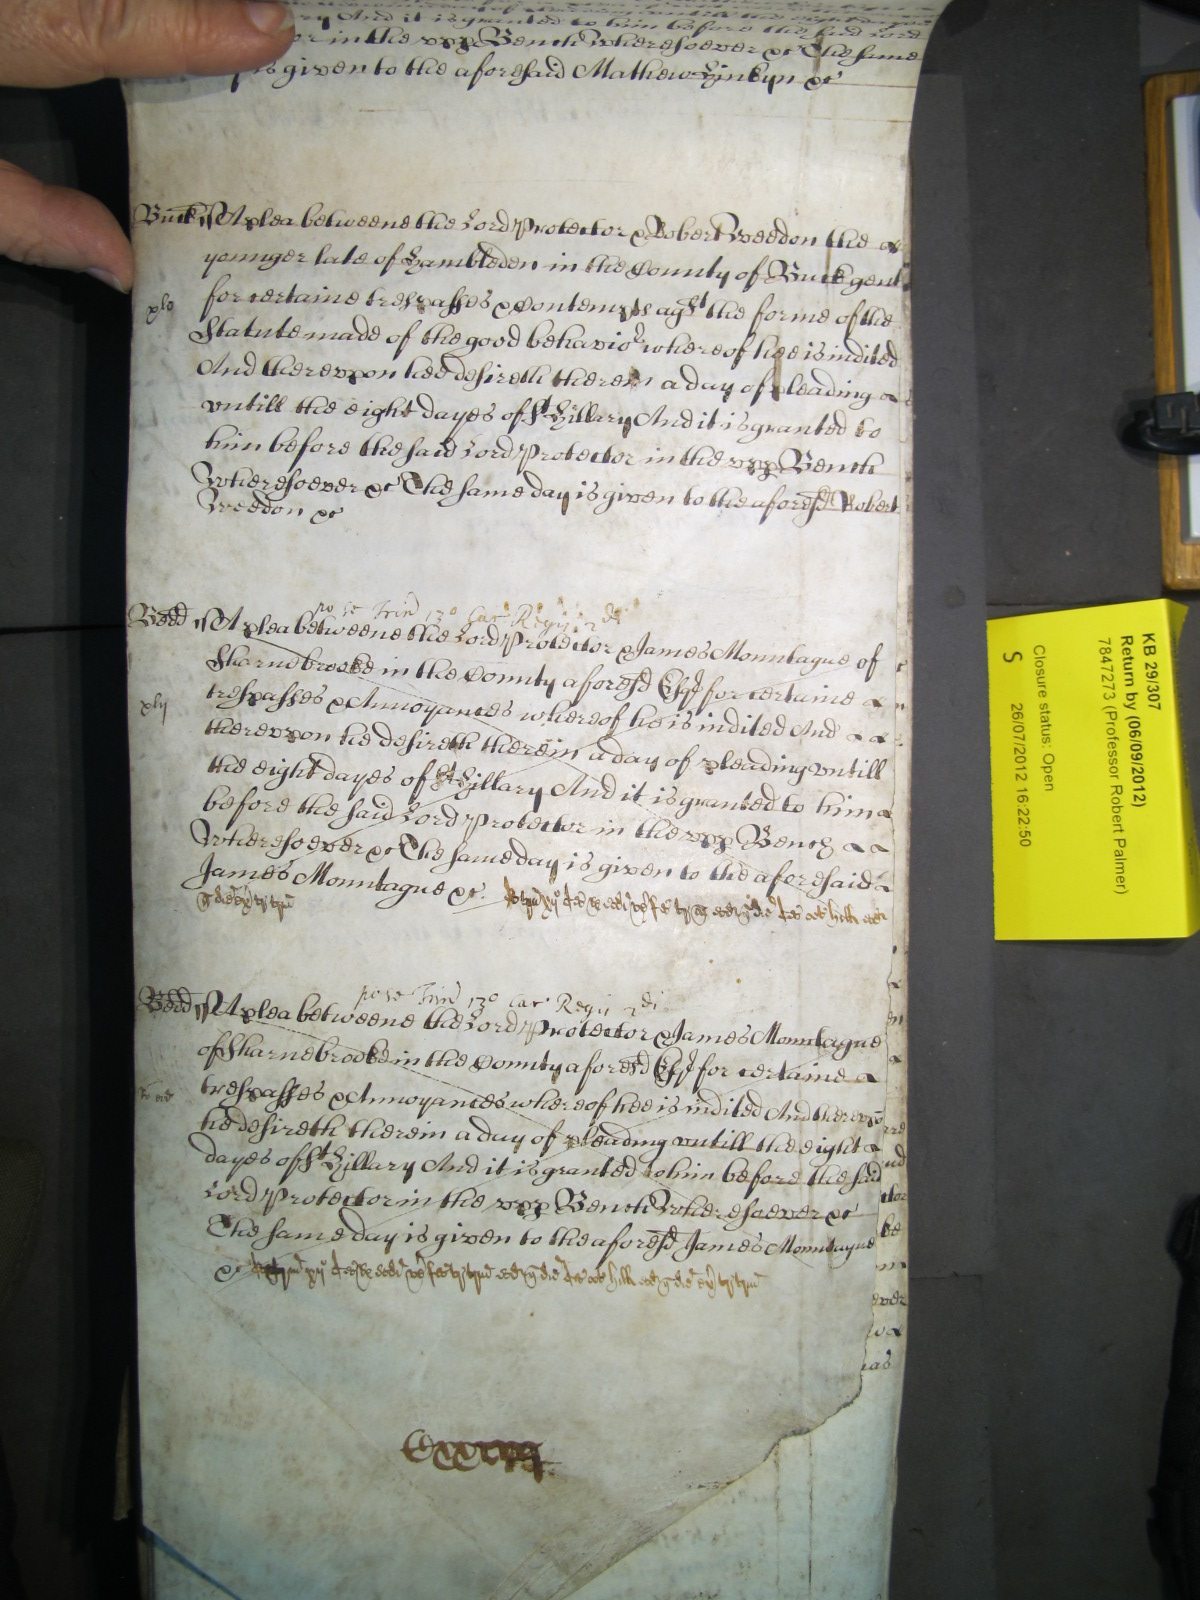 And it is granted to him before the said Lord
in the upp Bench Wheresoever &c The same
is given to the aforesaid Mathew Linkyn &c
Buck ss A plea betweene the Lord Protector & Robert Weedon the
younger late of Hambleden in the County of Buck gent
for certaine trespasses & Contempts agst the forme of the
Statute made of the good behavior whereof hee is indited
And thereupon hee desireth therein a day of pleading
untill the eight dayes of St Hillary And it is granted to
him before the said Lord Protector in the upp Bench
Wheresoever &c The same day is given to the aforesd Robert
Weedon &c
xlo
Bedd ss A plea betweene the Lord Protector & James Mountague of
po se Trin 13o Car Regis 2di
Sharnebrooke in the County aforesd Esqr for certaine
trespasses & Annoyances whereof he is indited And
xly
thereupon he desireth therein a day of pleading untill
the eight dayes of St Hillary And it is granted to him
before the said Lord Protector in the upp Bench
Wheresoever &c The same day is given to the aforesaid
James Mountague &c.
po se Trin 13o Car Regis 2di
Bedd ss A plea betweene the Lord Protector & James Mountague
of Sharnebrooke in the County aforesd Esqr for certaine
trespasses & Annoyances whereof hee is indited And thereupo
he desireth therein a day of pleading untill the eight
dayes of St Hillary And it is granted to him before the said
Lord Protector in the upp Bench Wheresoever &c
The same day is given to the aforesd James Mountague
&c
KB 29/307
Return by (06/09/2012)
7847273 (Professor Robert Palmer)
Closure status: Open
S 26/07/2012 16:22:50